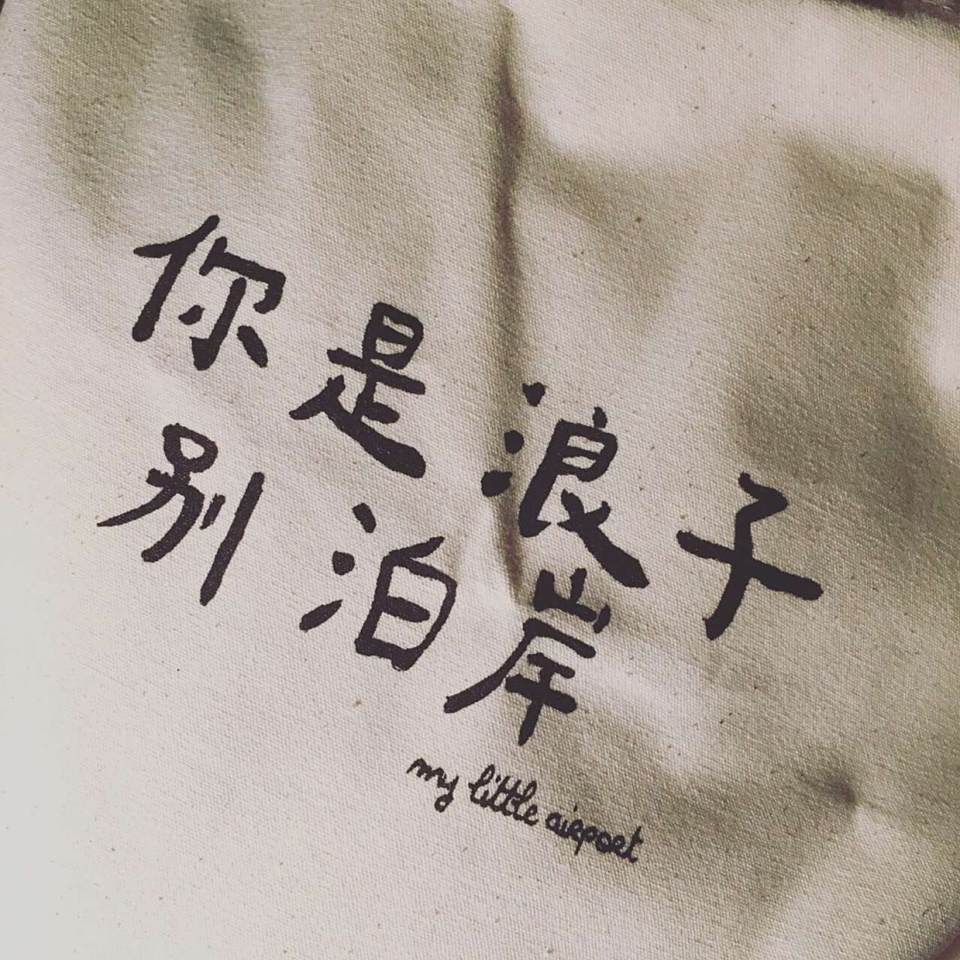 你是浪子
别泊岸
my little airport